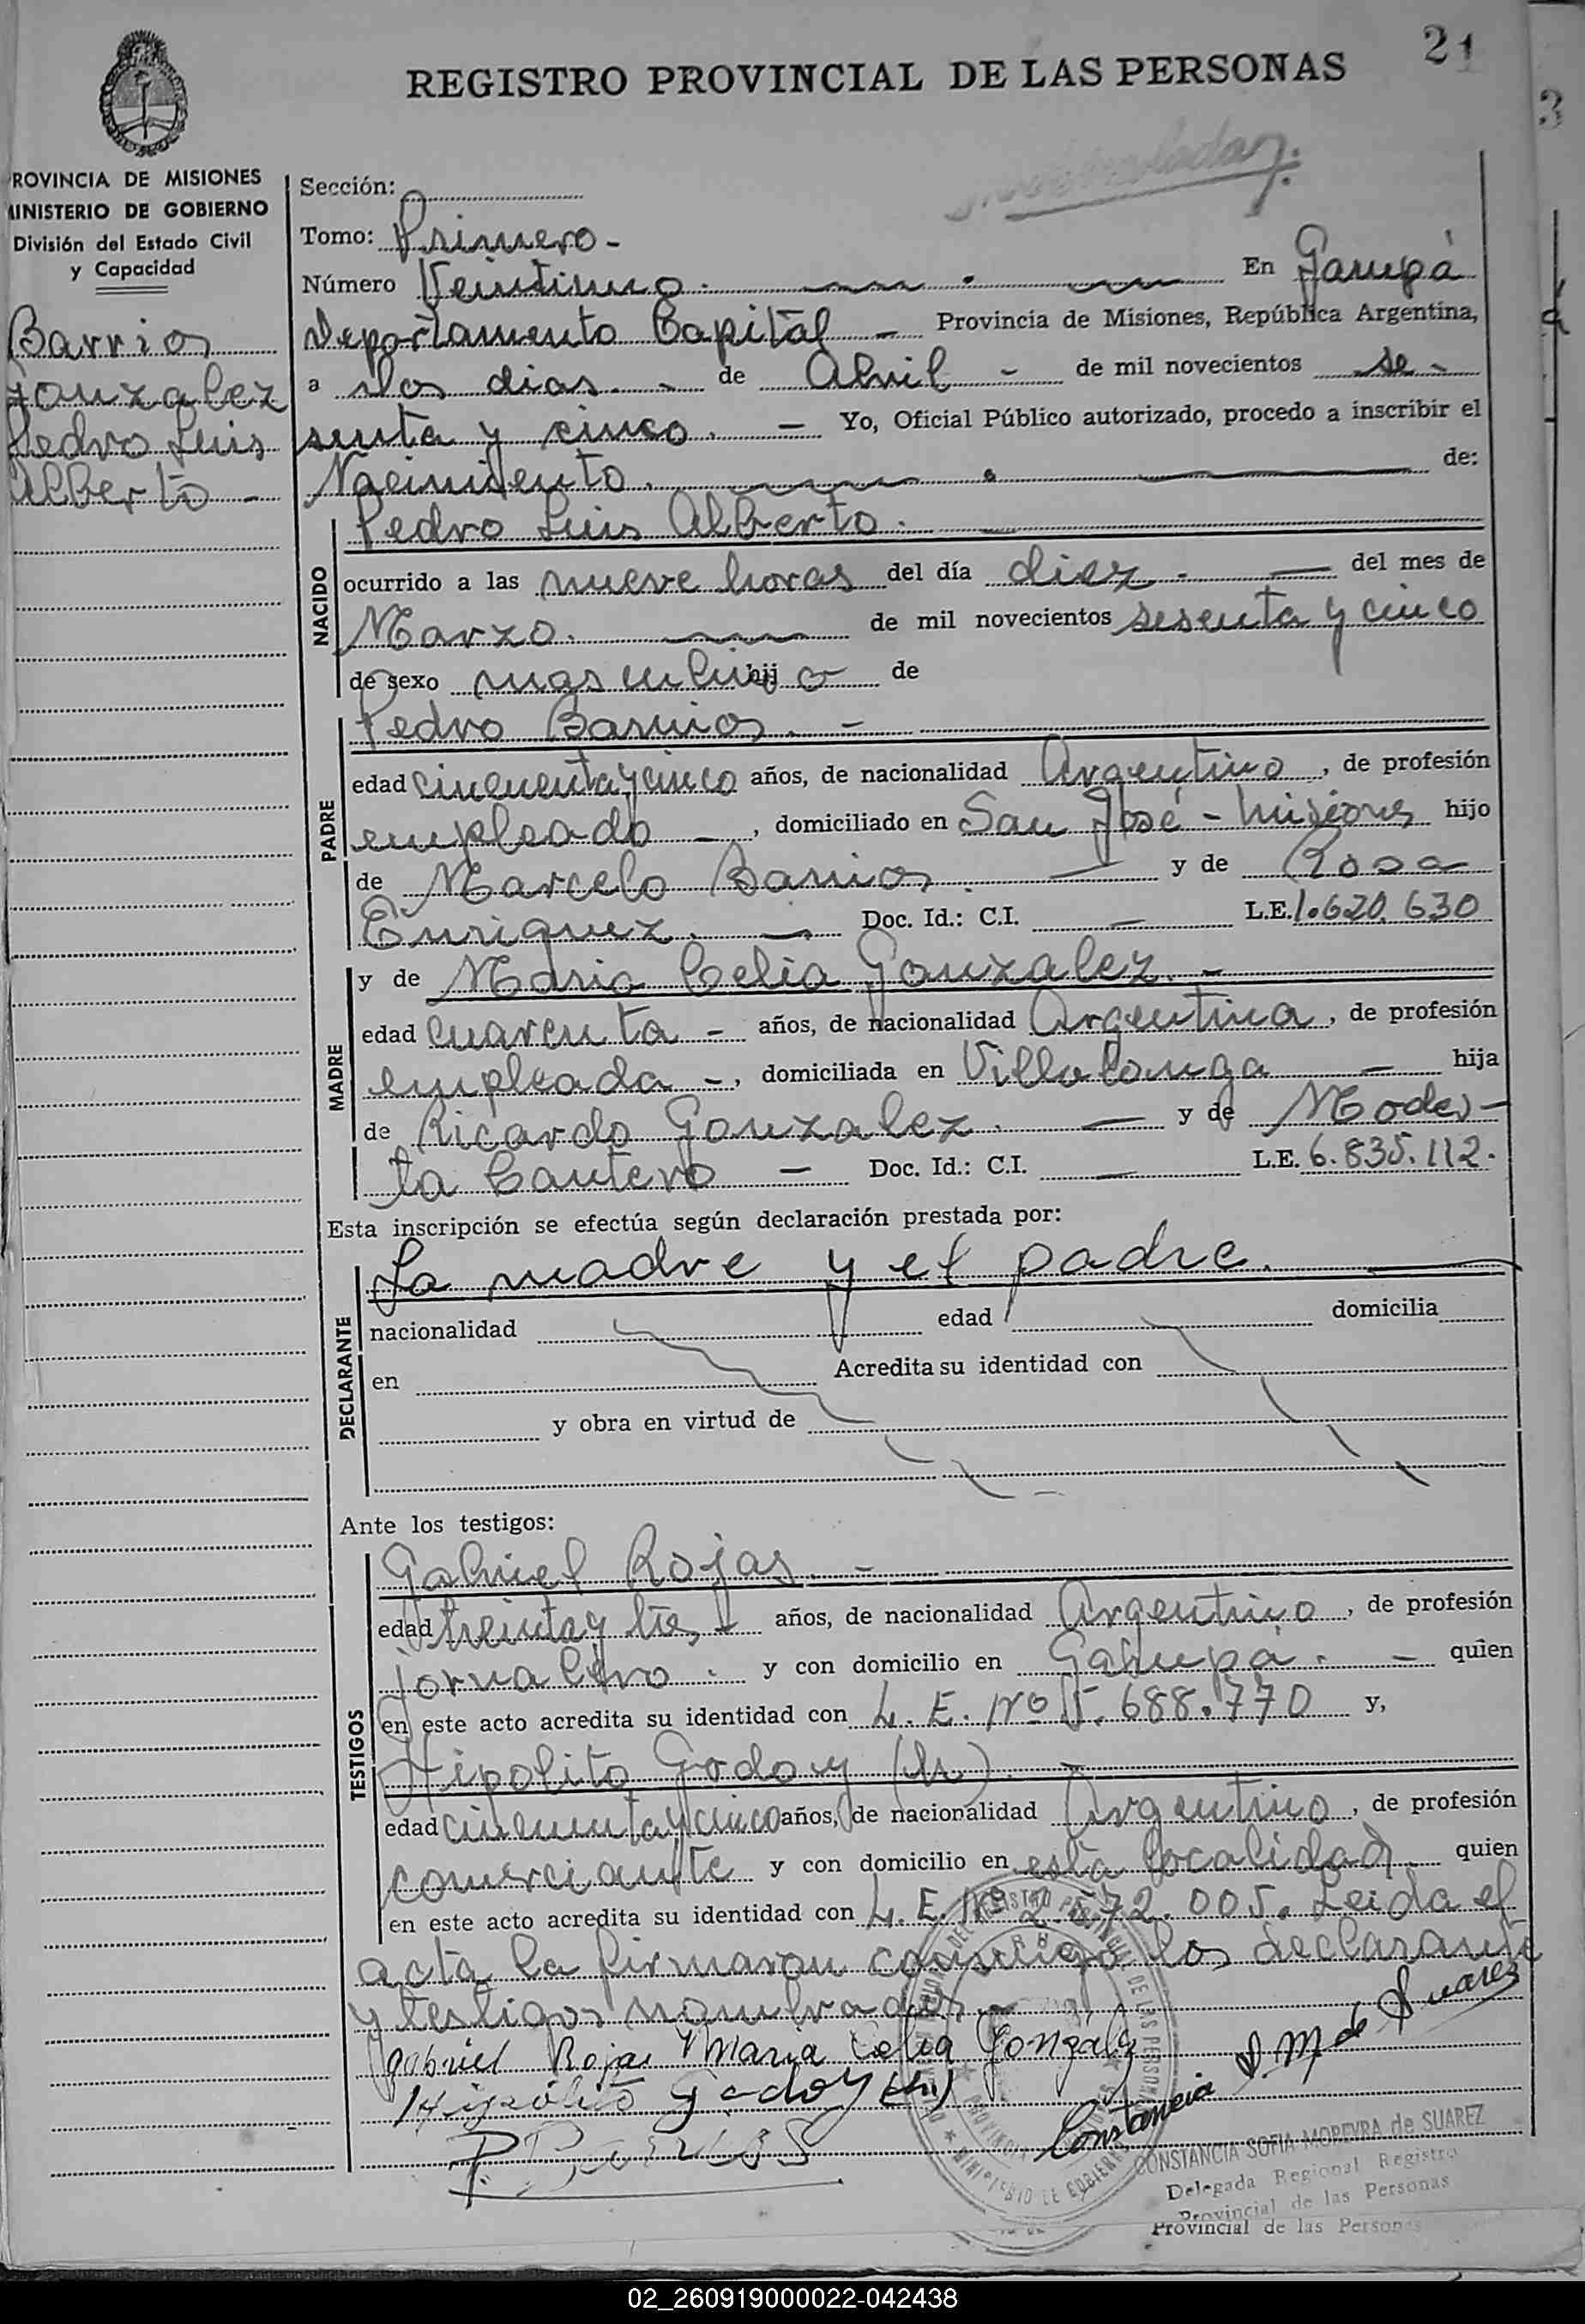 21
REGISTRO PROVINCIAL DE LAS PERSONAS
3
ROVINCIA DE MISIONES
MINISTERIO DE GOBIERNO
División del Estado Civil
y Capacidad
Barrios
Gonzalez
Pedro Luis
Alberto -
Sección:
Tomo: Primero -
Número Veintiuno. En Garupá
Departamento Capital - Provincia de Misiones, República Argentina,
a dos dias. - de Abril - de mil novecientos se-
senta y cinco. - Yo, Oficial Público autorizado, procedo a inscribir el
Nacimiento. de:
NACIDO
Pedro Luis Alberto. -
ocurrido a las nueve horas del día diez. - del mes de
Marzo. de mil novecientos sesenta y cinco
de sexo masculino hij o de
PADRE
Pedro Barrios. -
edad cincuenta y cinco años, de nacionalidad Argentino, de profesión
empleado -, domiciliado en San José - Misiones hijo
de Marcelo Barrios. - y de Rosa
Enriquez. - Doc. Id.: C.I. - L.E. 1.620.630
MADRE
y de Maria Celia Gonzalez. -
edad cuarenta - años, de nacionalidad Argentina, de profesión
empleada -, domiciliada en Villalonga - hija
de Ricardo Gonzalez. - y de Modes-
ta Cantero - Doc. Id.: C.I. - L.E. 6.835.112.
Esta inscripción se efectúa según declaración prestada por:
DECLARANTE
La madre y el padre.
nacionalidad edad domicilia
en Acredita su identidad con
y obra en virtud de
Ante los testigos:
TESTIGOS
Gabriel Rojas. -
edad treinta y tres - años, de nacionalidad Argentino, de profesión
jornalero. y con domicilio en Garupá. - quien
en este acto acredita su identidad con L.E. Nº 5.688.770 y,
Hipolito Godoy (h). -
edad cincuenta y cinco años, de nacionalidad Argentino, de profesión
comerciante y con domicilio en esta localidad. quien
en este acto acredita su identidad con L.E. Nº 2.572.005. Leida el
acta la firmaron conmigo los declarante
y testigos nombrados. -
Gabriel Rojas Maria Celia Gonzalez
Hipólito Godoy (h)
Constancia S. M. de Suarez
P. Barrios
CONSTANCIA SOFIA MOREYRA de SUAREZ
Delegada Regional Registro
Provincial de las Personas
Provincial de las Personas
02_260919000022-042438